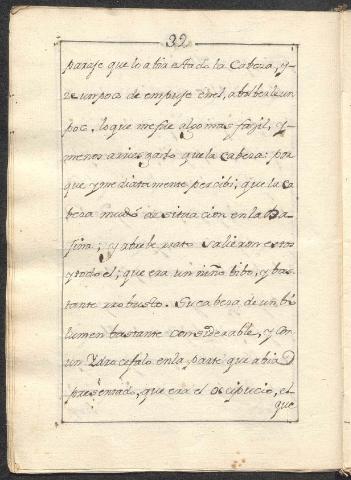 32
paraje que lo abia estado la Cabeza, y
un poco de empuje en el, a bolberle un
poco, lo que me fue algo mas fazil, y
menos arriesgado que la cabeza: por
que ymediatamente percibi, que la ca
beza mudó de situacion en la Ba
sina; y a brebe rato salieron estos
y todo el; que era un niño bibo, y bas
tante rrobusto. Su cabeza de un bu
lumen bastante considerable, y con
un Ydrocefalo en la parte que abia
presentado, que era el occipucio, el
que